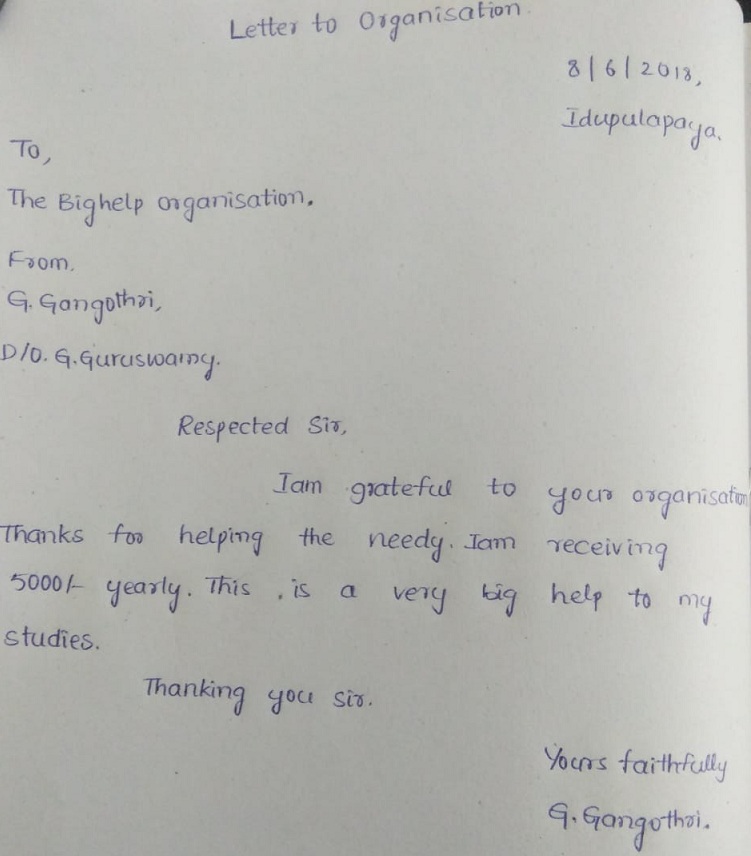 Letter to Organisation.
8/6/2018,
Idupulapaya.
To,
The Bighelp organisation.
From,
G. Gangothri,
D/O. G.Guruswamy.
Respected Sir,
Iam grateful to your organisation
Thanks for helping the needy. Iam receiving
5000/- yearly. This is a very big help to my
studies.
Thanking you sir.
Yours faithfully
G. Gangothri.